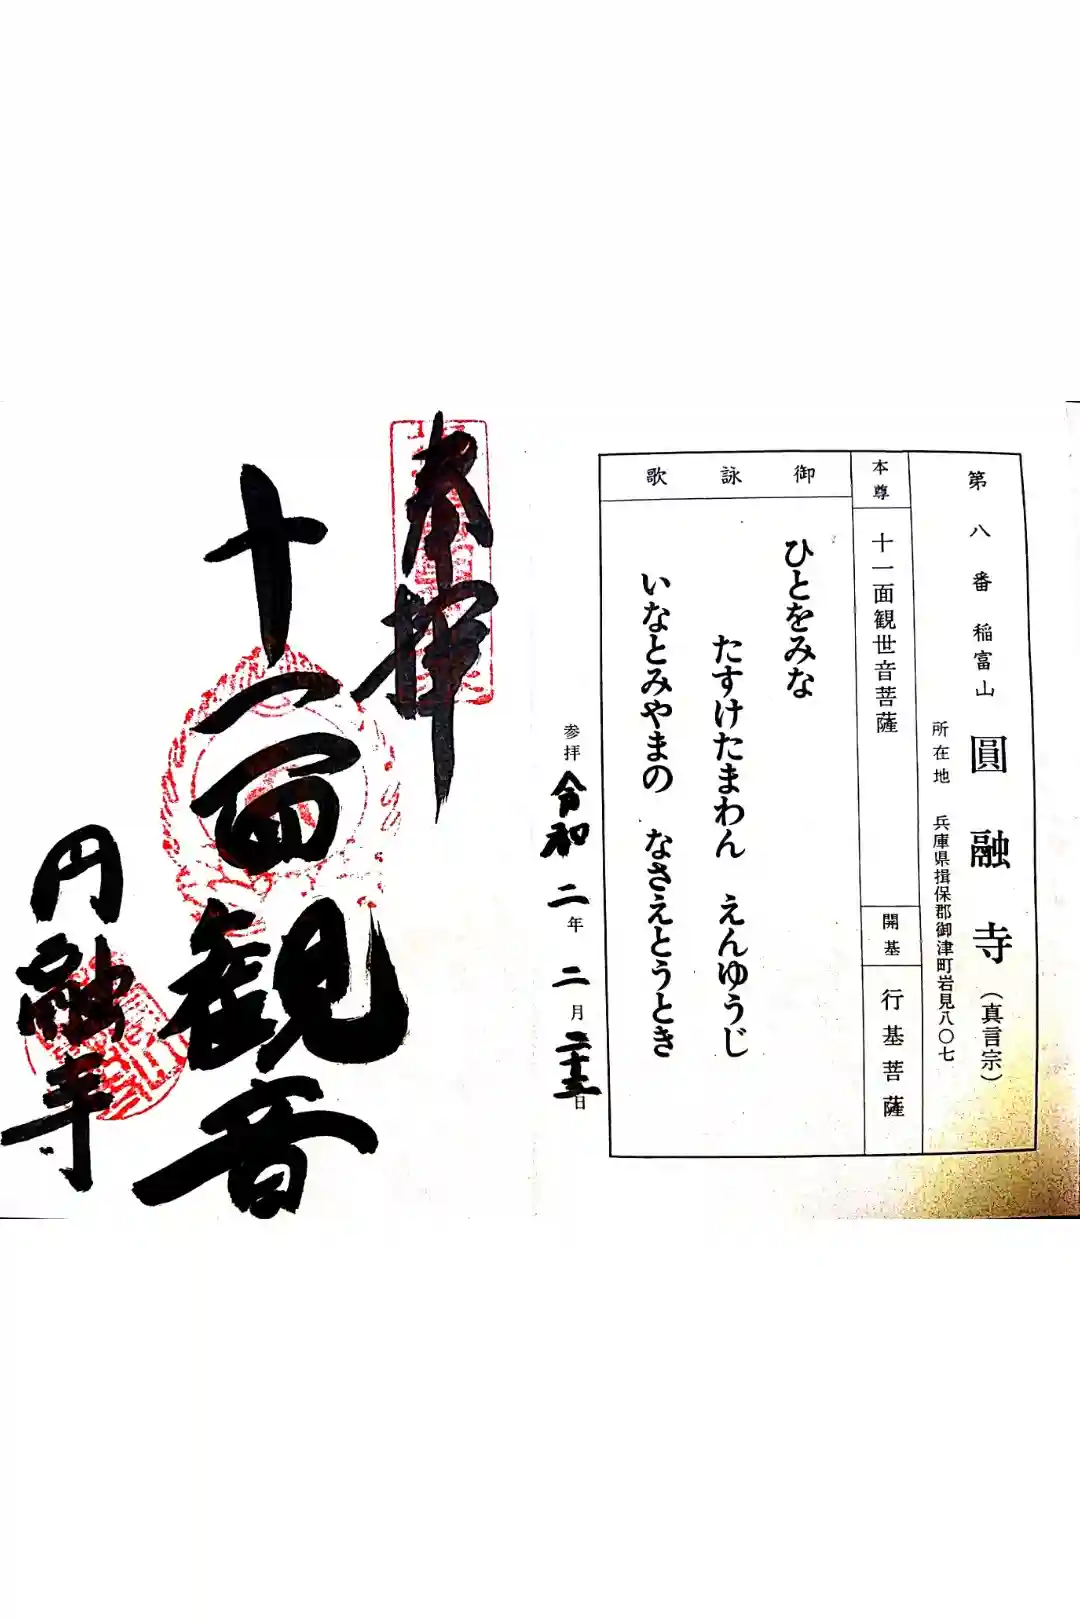 第八番 稲富山 圓融寺（真言宗）
所在地 兵庫県揖保郡御津町岩見八〇七
本尊 十一面観世音菩薩
開基 行基菩薩
御詠歌
ひとをみな
たすけたまわん えんゆうじ
いなとみやまの なさえとうとき
参拝 令和 二年 二月 二十三日
奉拝
十一面観音
円融寺